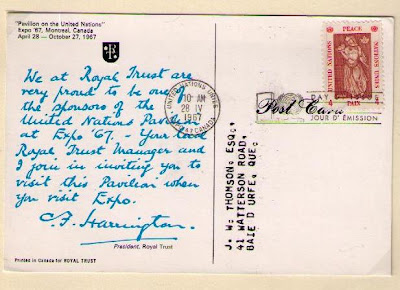 "Pavilion on the United Nations"
Expo '67, Montreal, Canada
April 28 — October 27, 1967
We at Royal Trust are
very proud to be one of
the sponsors of the
United Nations Pavilion
at Expo '67. – Your local
Royal Trust Manager and
I join in inviting you to
visit this Pavilion when
you visit Expo.
C. F. Harrington.
President, Royal Trust
Printed in Canada for ROYAL TRUST
UNITED NATIONS
10 AM
28 IV
1967
CANADA
PEACE
UNITED NATIONS
NATIONS UNIES
4
PAIX
Post Card
DAY
JOUR D'ÉMISSION
J. W. THOMSON, ESQ.,
41 WATTERSON ROAD,
BAIE D'URFE, QUE.